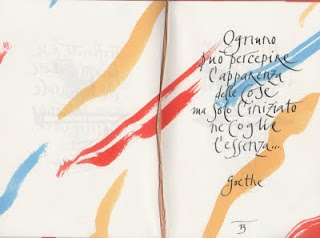 Ognuno
può percepire
l'apparenza
delle cose
ma solo l'iniziato
ne coglie
l'essenza...
Goethe